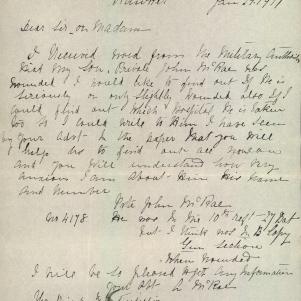 Jan 29 1917
Dear Sir or Madam
I Received word from the Military Authority
that my Son, Private John McRae was
wounded I would like to find out if he is
seriously or only slightly wounded also if I
could find out which Hospital he is taken
too so I could write to him I have seen
your Advt in the paper that you will
help us to find out all you can
and you will understand how very
anxious I am about him his name
and number
Pvte John McRae
No 4178 He was in the 10th regt 27 Bat
but I think was in B Copy
Gun Section
when wounded
I will be so pleased to get any Information
McRae